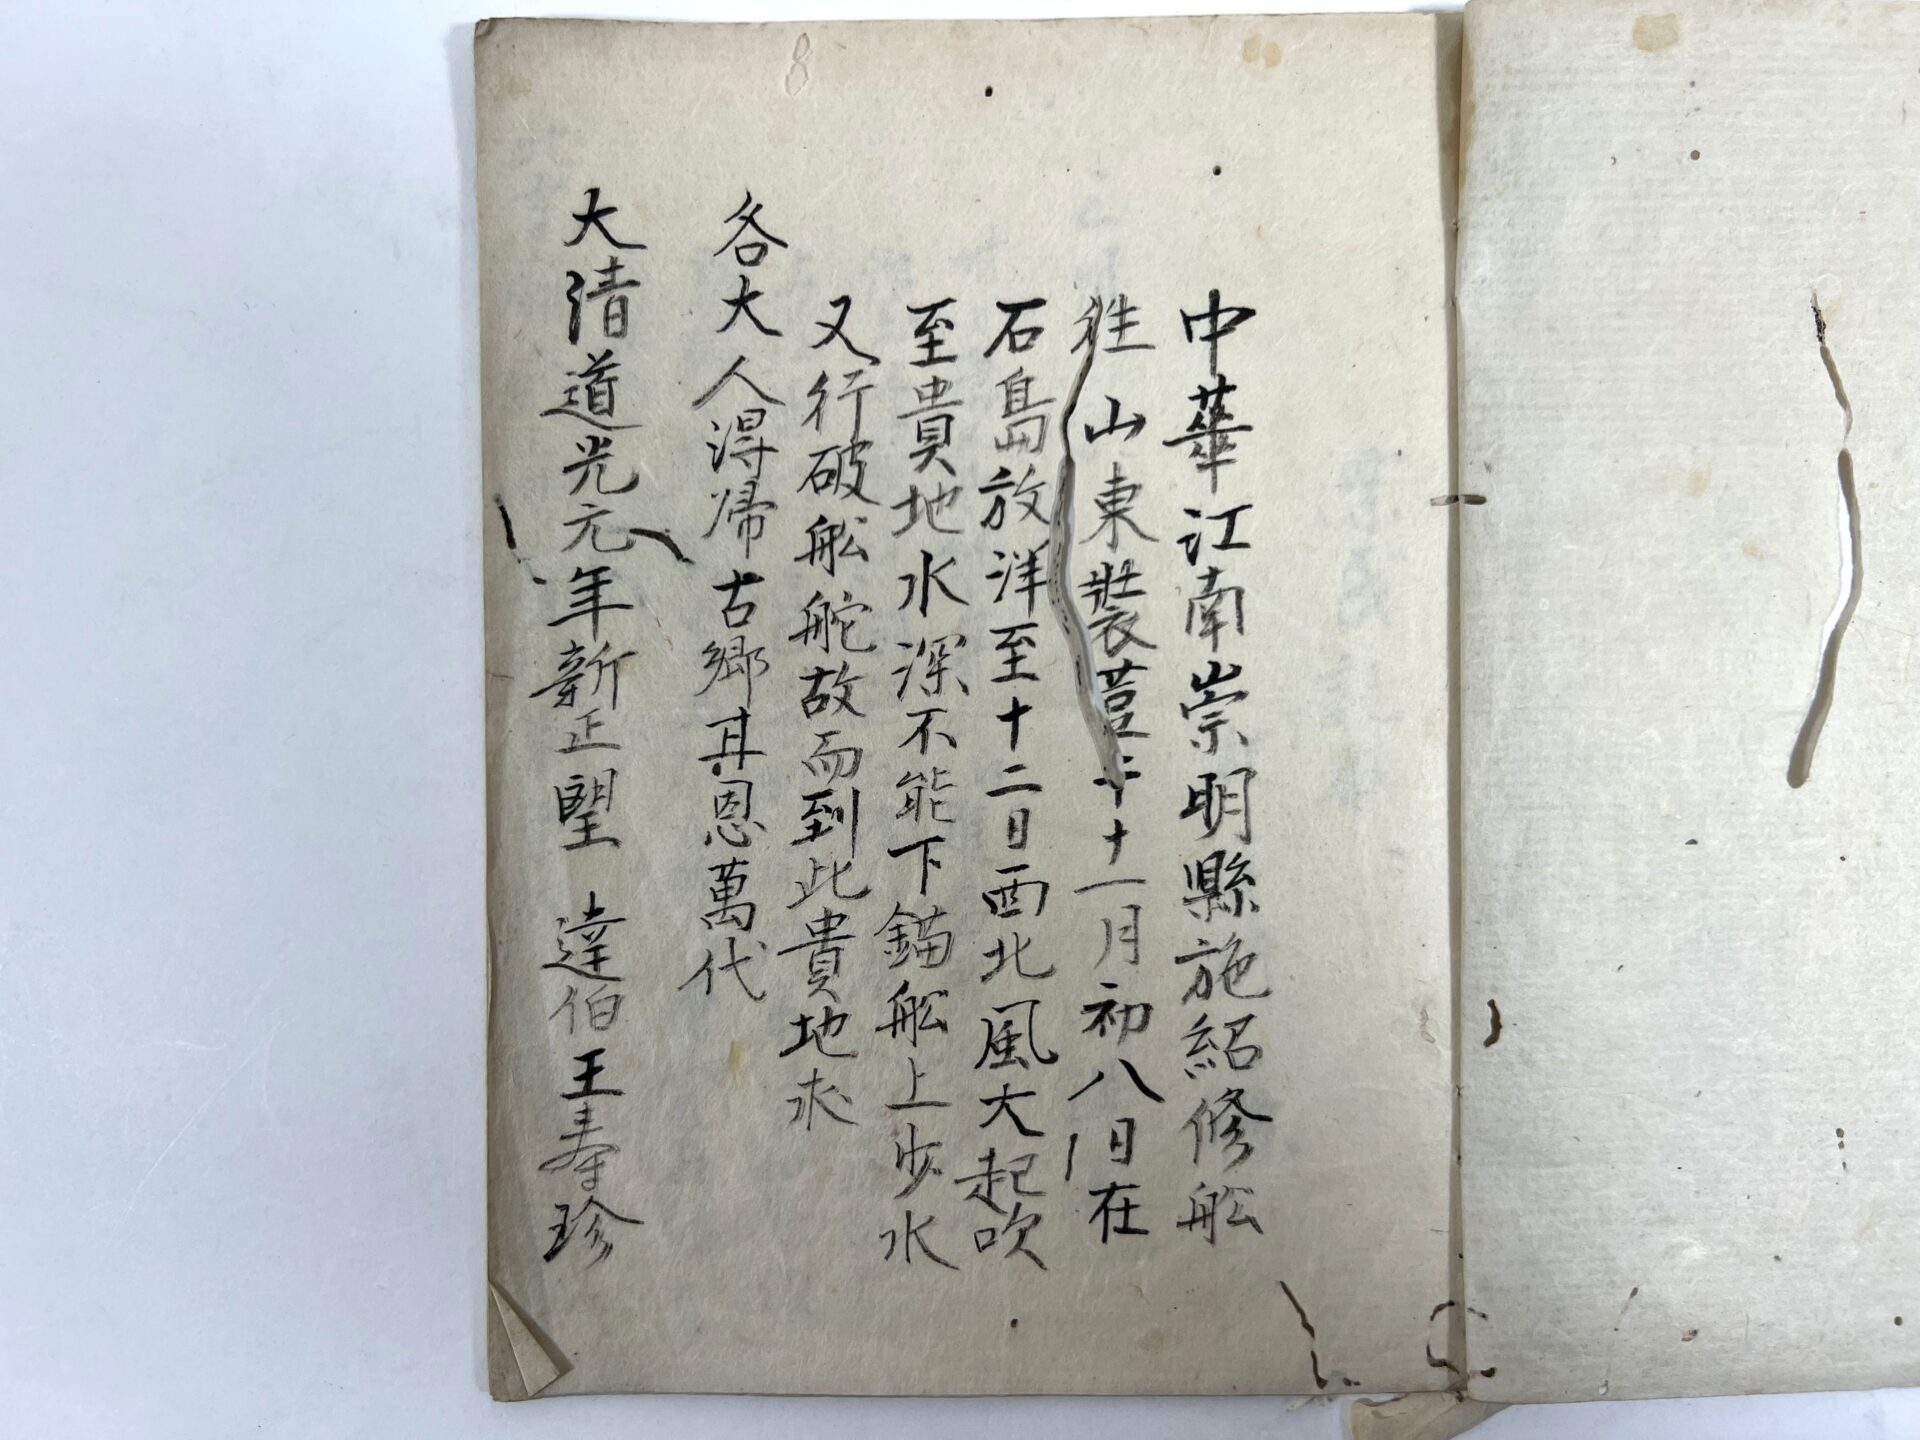 中華江南崇明縣施紹修舩
徃山東裝荳于十一月初八日在
石島放洋至十二日西北風大起吹
至貴地水深不能下錨舩上少水
又行破舩舵故而到此貴地求
各大人得帰古郷其恩萬代
大清道光元年新正望　達伯王寿珍